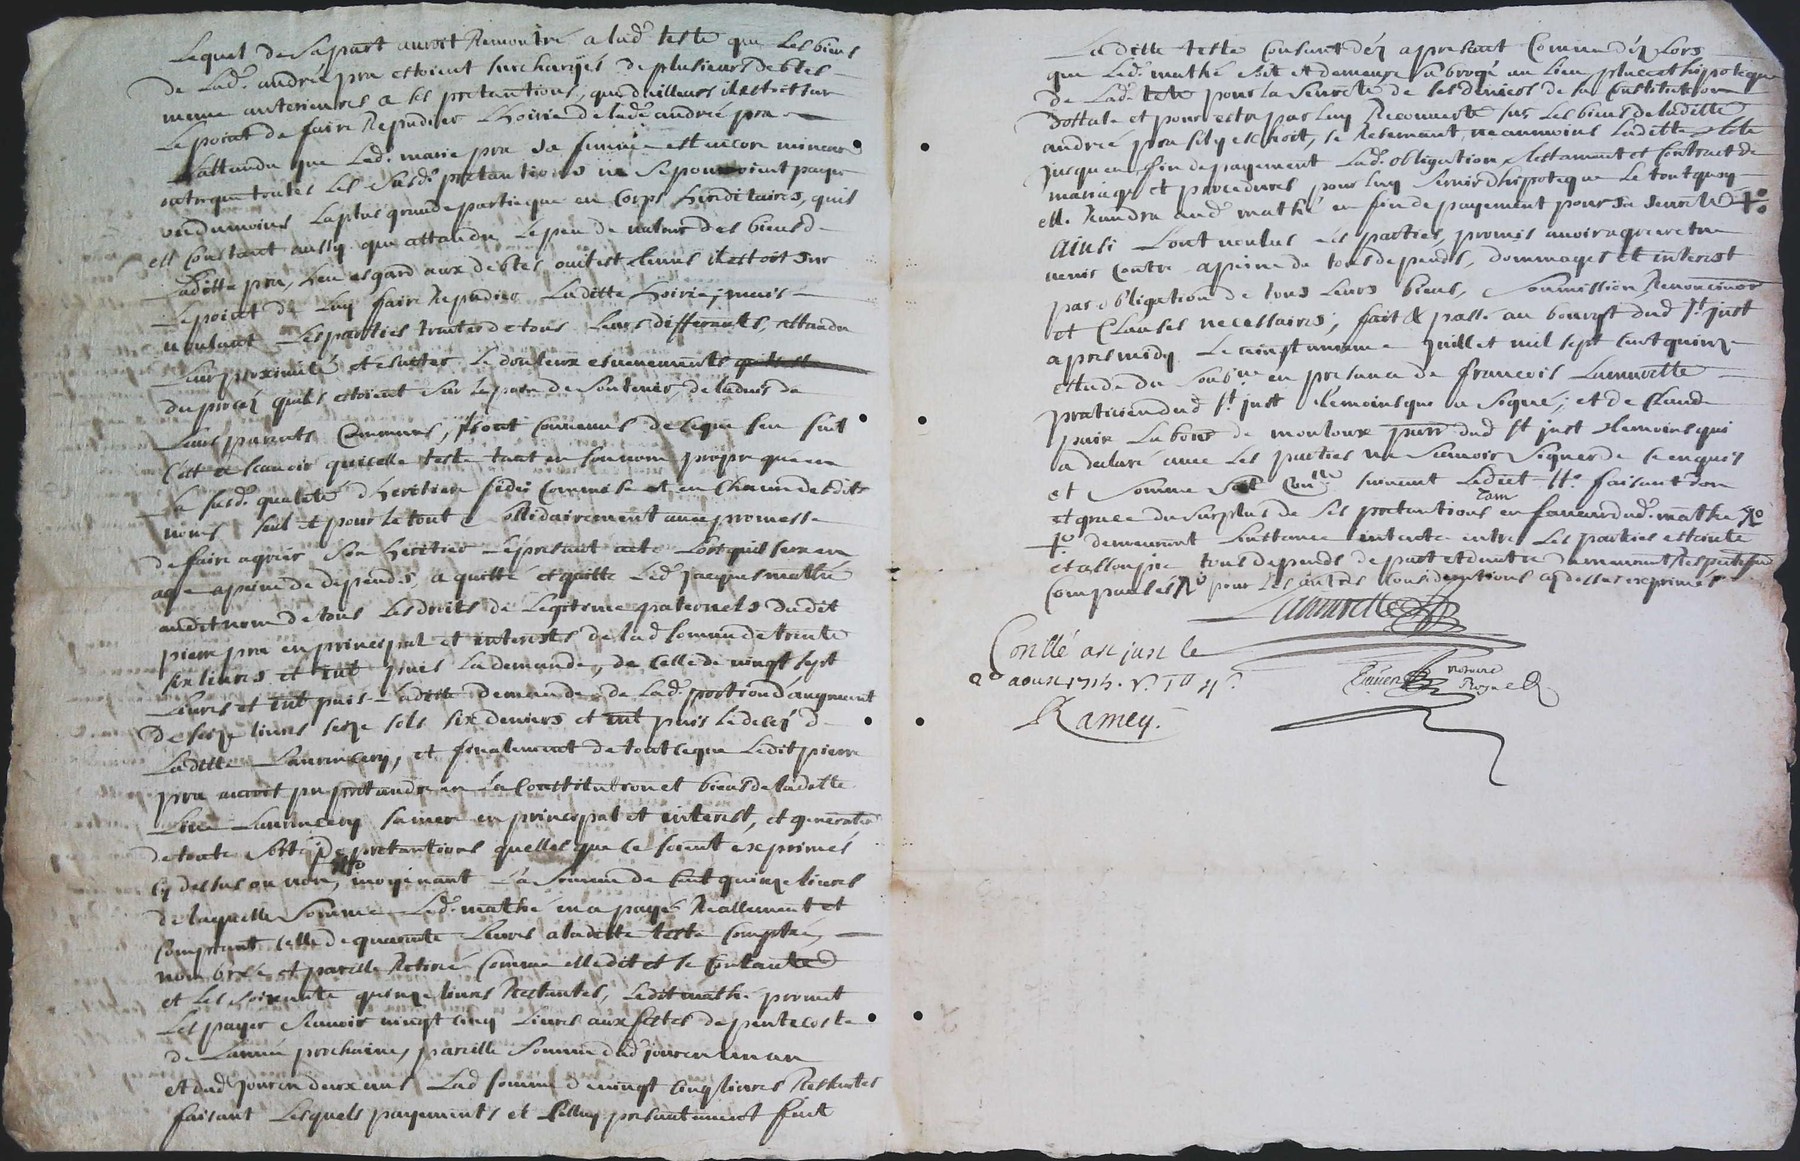 Lequel de sa part auroit Remontré a lad.e teste que Les biens
de Lad. andrée pra estoient surchargés de plusieurs debtes
mesme anterieures a ses pretantions, que d'ailleurs il estoit sur
Le point de faire Repudier Lhoirie de lade andrée pra
attandu que Led. marie pra sa femme est encore mineure
outre que toutes Les susd. pretantions ne se pouvoient payer
ou du moins La plus grande partie que en Corps Hereditaires, quil
est Constant aussy que attandu Le peu de valeur des biens de
Laditte pra, heu esgard aux debtes il estoit sur
Le point de Luy faire Repudier Laditte hoirie; mais
voulant Les parties traiter de tous Leurs differants, attandu
Leur proximité et esvitter Le douteux esvenements
du procés quils estoient sur Le point de soutenir, de Ladvis de
Leurs parants Communs, sont convenus de ce que sen suit
C'est a scavoir quicelle teste tant en son nom propre que en
la susd. qualité d'heritiere fidei Commise et en Chacun desdits
noms seul et pour le tout solidairement avec promesse
de faire agreer son heritier Le present acte Lors quil sera en
age a peine de dépends, a quitté et quitte Led. jacques mathé
audit nom de tous Les droits de Legitime paternels dudit
pierre pra en principal et interests de lad somme de trente
six livres et int puis La demande, de Celle de vingt sept
Livres et int puis Ladite demande, de Lad. portion d'augment
de seize livres seize sols six deniers et int puis Le decés de
Laditte Laurencery, et finalement de tout ce que Ledit pierre
pra auroit pu pretandre en La Constitution et biens de laditte
Laurencery sa mere en principal et interest, et generale
de toute sorte de pretantions quelles que ce soient exprimés
cy dessus ou non, moyenant La somme de Cent quinze livres
de laquelle somme Led. mathé en a payé Reallement et
Comptant celle de quarante Livres a laditte teste Comptée,
nombrée et par elle Retirée Comme elle dit et se Contante
et Les soixante quinze livres Restantes, Ledit mathé promet
Les payer scavoir vingt cinq Livres aux festes de pentecoste
de Lannée prochaine, pareille somme dud jour en un an
et dud jour en deux ans Lad somme de vingt cinq livres Restantes
faisant Lesquels payements et celluy presantement fait
Laditte teste Consant déz apresant Comme déz Lors
que Led. mathé soit et demeure subrogé au Lieu, place et hipoteque
de Lad. teste pour La seureté de ses deniers de sa Constitution
dottale et pour estre par Luy Recouverte sur Les biens de laditte
andrée pra sil y eschoit, se Reservant neanmoins Laditte teste
jusquen fin de payement Lad. obligation, testament et Contract de
mariage et procedures pour Luy servir dhipoteque Le tout quoy
elle Randra aud mathé en fin de payement pour sa seureté
Ainsi L'ont voulus Les parties, promis avoir agreer et ne
venir Contre a peine de tous depends, dommages et interest
par obligation de tous Leurs biens, soumission, Renonciations
et Clauses necessaires; fait & passé au bourgt dud St just
apres midy Le cinquieme juillet mil sept Cent quinze
estude du soubné en presance de francois Lauurette
praticien dud St just temoins qui a signé; et de Claude
pair Laboureur de mouloux parr dud St just temoins qui
a declaré avec Les parties ne scavoir signer de ce enquis
et somme suivant Ledit faisant don
et grace du surplus de ses pretantions en faveur dud. mathé
demeurant Linstance intentée entre Les parties esteinte
et assoupie tous depends de part et dautre demeurant Respectivement
Compansés pour les autres Considerations cy dessus exprimés
Lauurette
Con.llé a st just le
2e aoust 1715. R.
Ramey.
notaire
Royal